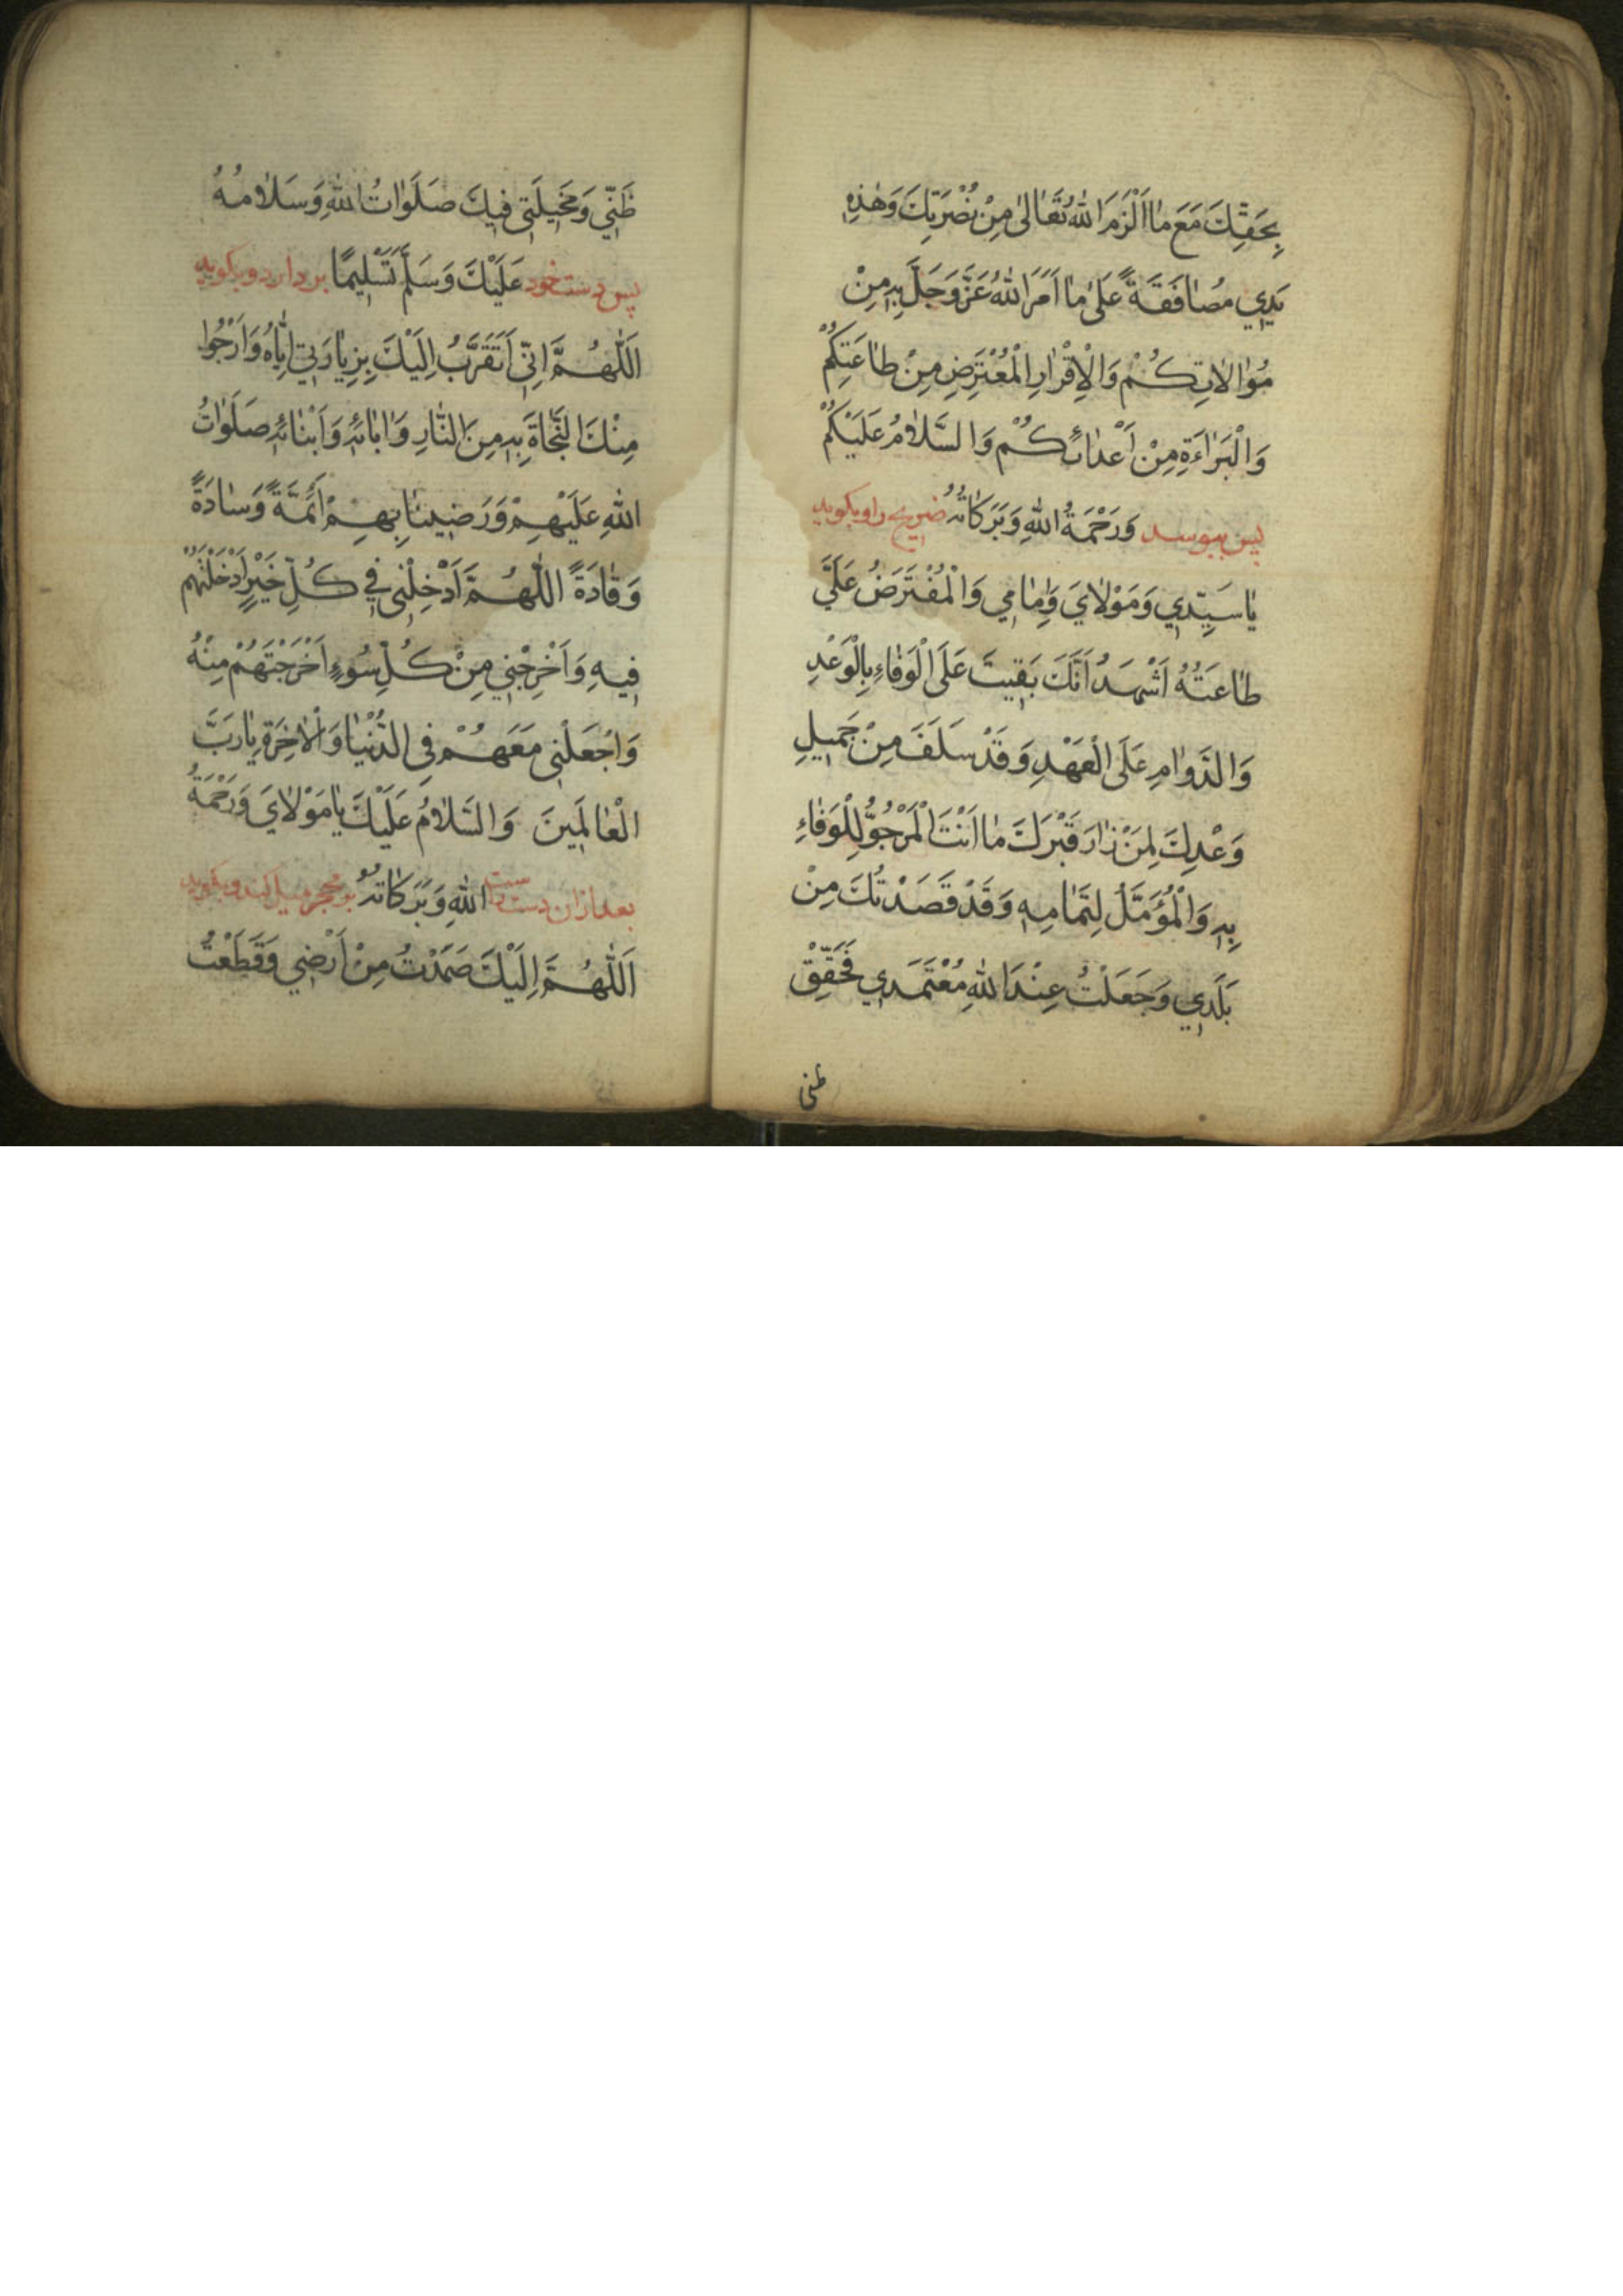 بِحَقِّكَ مَعَ مٰا اَلْزَمَ اللهُ تَعٰالىٰ مِنْ نُصْرَتِكَ وَهٰذِهِ
يَدِي مُصٰافَقَةً عَلىٰ مٰا اَمَرَ اللهُ عَزَّوَجَلَّ بِهِ مِنْ
مُوٰالاٰتِكُمْ وَالْاِقْرٰارِ الْمُعْتَرِضِ مِنْ طٰاعَتِكُمْ
وَالْبَرٰاءَةِ مِنْ اَعْدٰائِكُمْ وَالسَّلاٰمُ عَلَيْكُمْ
وَرَحْمَةُ اللهِ وَبَرَكٰاتُهُ پس ببوسد ضریح را و بکوید
يٰا سَيِّدِي وَمَوْلاٰيَ وَاِمٰامِي وَالْمُفْتَرَضُ عَلَيَّ
طٰاعَتُهُ اَشْهَدُ اَنَّكَ بَقِيتَ عَلَى الْوَفٰاءِ بِالْوَعْدِ
وَالدَّوٰامِ عَلَى الْعَهْدِ وَقَدْ سَلَفَ مِنْ جَمِيلِ
وَعْدِكَ لِمَنْ زٰارَ قَبْرَكَ مٰا اَنْتَ الْمَرْجُوُّ لِلْوَفٰاءِ
بِهِ وَالْمُؤَمَّلُ لِتَمٰامِهِ وَقَدْ قَصَدْتُكَ مِنْ
بَلَدِي وَجَعَلْتُ عِنْدَ اللهِ مُعْتَمَدِي فَحَقِّقْ
ظنی
ظَنِّي وَمَخِيلَتِي فِيكَ صَلَوٰاتُ اللهِ وَسَلاٰمُهُ
عَلَيْكَ وَسَلَّمَ تَسْلِيمًا پس دست خود بردارد و بکوید
اَللّٰهُمَّ اِنِّي اَتَقَرَّبُ اِلَيْكَ بِزِيٰارَتِي اِيّٰاهُ وَاَرْجُوا
مِنْكَ النَّجٰاةَ بِهِ مِنَ النّٰارِ وَاٰبٰائِهِ وَاَبْنٰائِهِ صَلَوٰاتُ
اللهِ عَلَيْهِمْ وَرَضِينٰا بِهِمْ اَئِمَّةً وَسٰادَةً
وَقٰادَةً اَللّٰهُمَّ اَدْخِلْنِي فِي كُلِّ خَيْرٍ اَدْخَلْتَهُمْ
فِيهِ وَاَخْرِجْنِي مِنْ كُلِّ سُوءٍ اَخْرَجْتَهُمْ مِنْهُ
وَاجْعَلْنِي مَعَهُمْ فِي الدُّنْيٰا وَالْاٰخِرَةِ يٰا رَبَّ
الْعٰالَمِينَ وَالسَّلاٰمُ عَلَيْكَ يٰا مَوْلاٰيَ وَرَحْمَةُ
اللهِ وَبَرَكٰاتُهُ بعد از ان دست
اَللّٰهُمَّ اِلَيْكَ صَمَدْتُ مِنْ اَرْضِي وَقَطَعْتُ